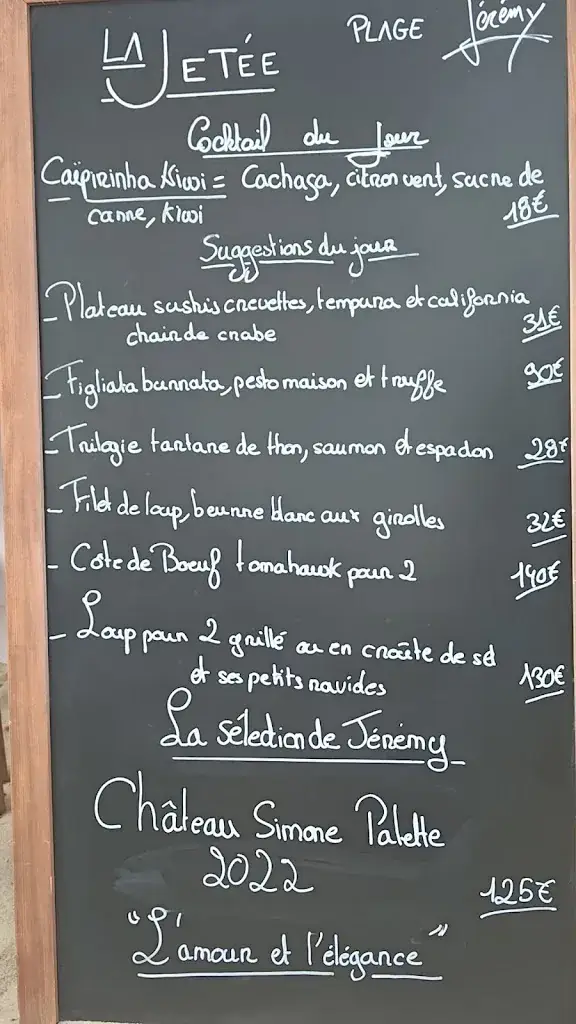 LA JETÉE
PLAGE Jérémy
Cocktail du Jour
Caïpirinha Kiwi = Cachaça, citron vert, sucre de
canne, kiwi 18€
Suggestions du jour
- Plateau sushis crevettes, tempura et california
chair de crabe 31€
- Figliata burrata, pesto maison et truffe 90€
- Trilogie tartare de thon, saumon et espadon 28€
- Filet de loup, beurre blanc aux girolles 32€
- Côte de Boeuf tomahawk pour 2 140€
- Loup pour 2 grillé ou en croûte de sel
et ses petits ravides 130€
La sélection de Jérémy
Château Simone Palette
2022 125€
"L'amour et l'élégance"